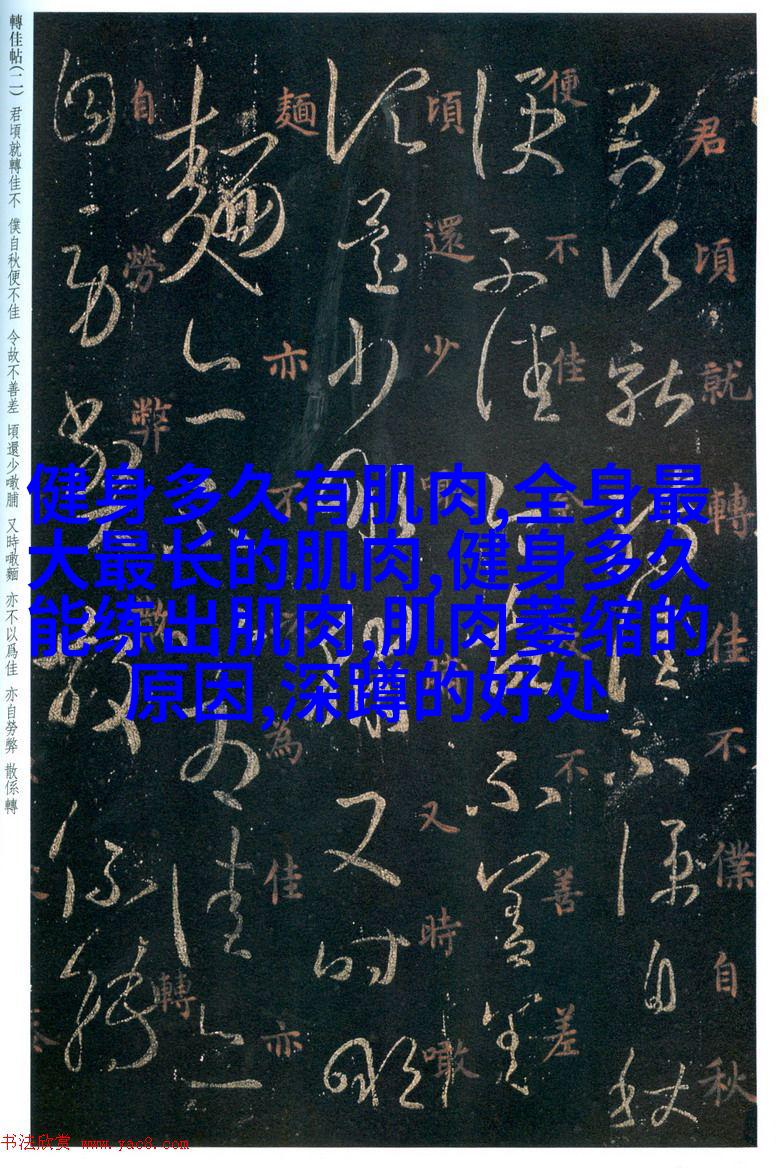 轉佳帖(二) 君頃就轉佳不 僕自秋便不佳 今故不善差 頃還少噉脯 又時噉麵 亦不以爲佳 亦自勞弊 散係轉
君頃就轉佳不僕自秋
便不佳今故不善差
頃還少噉脯又時噉
麵亦不以為佳亦
自勞弊散係轉
健身多久有肌肉,全身最
大最长的肌肉,健身多久
能练出肌肉,肌肉萎缩的
原因,深蹲的好处
书法欣赏 www.yac8.com